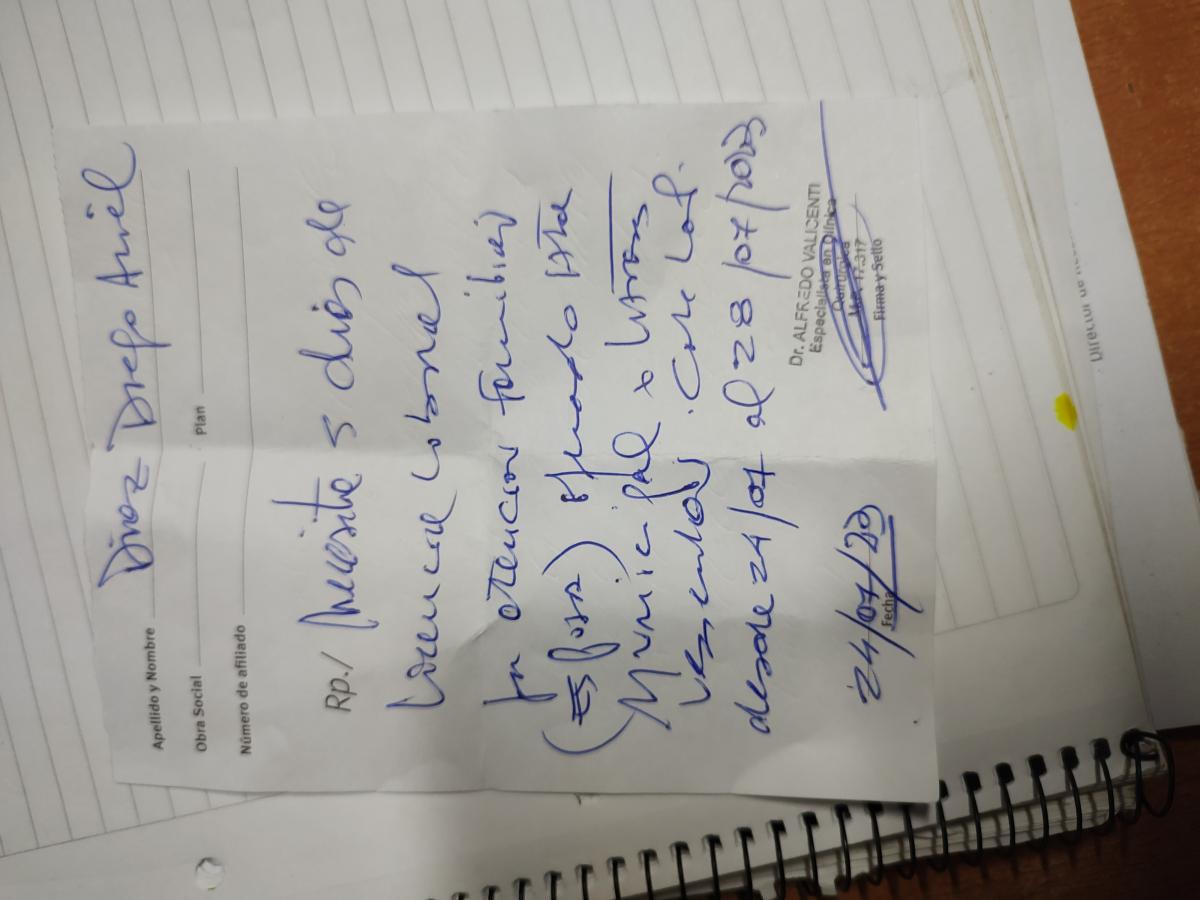 Apellido y Nombre Diaz Diego Ariel
Obra Social Plan
Número de afiliado
Rp./ Necesita 5 dias de
Licencia Laboral
por atencion Familiar
(Esposa)
Municipal x
Vesicular . Con Lap.
desde 24/07 al 28/07/2023
Dr. ALFREDO VALICENTI
Especialista en Clínica
Quirúrgica
M.P. 17.317
24/07/23
Fecha
Firma y Sello